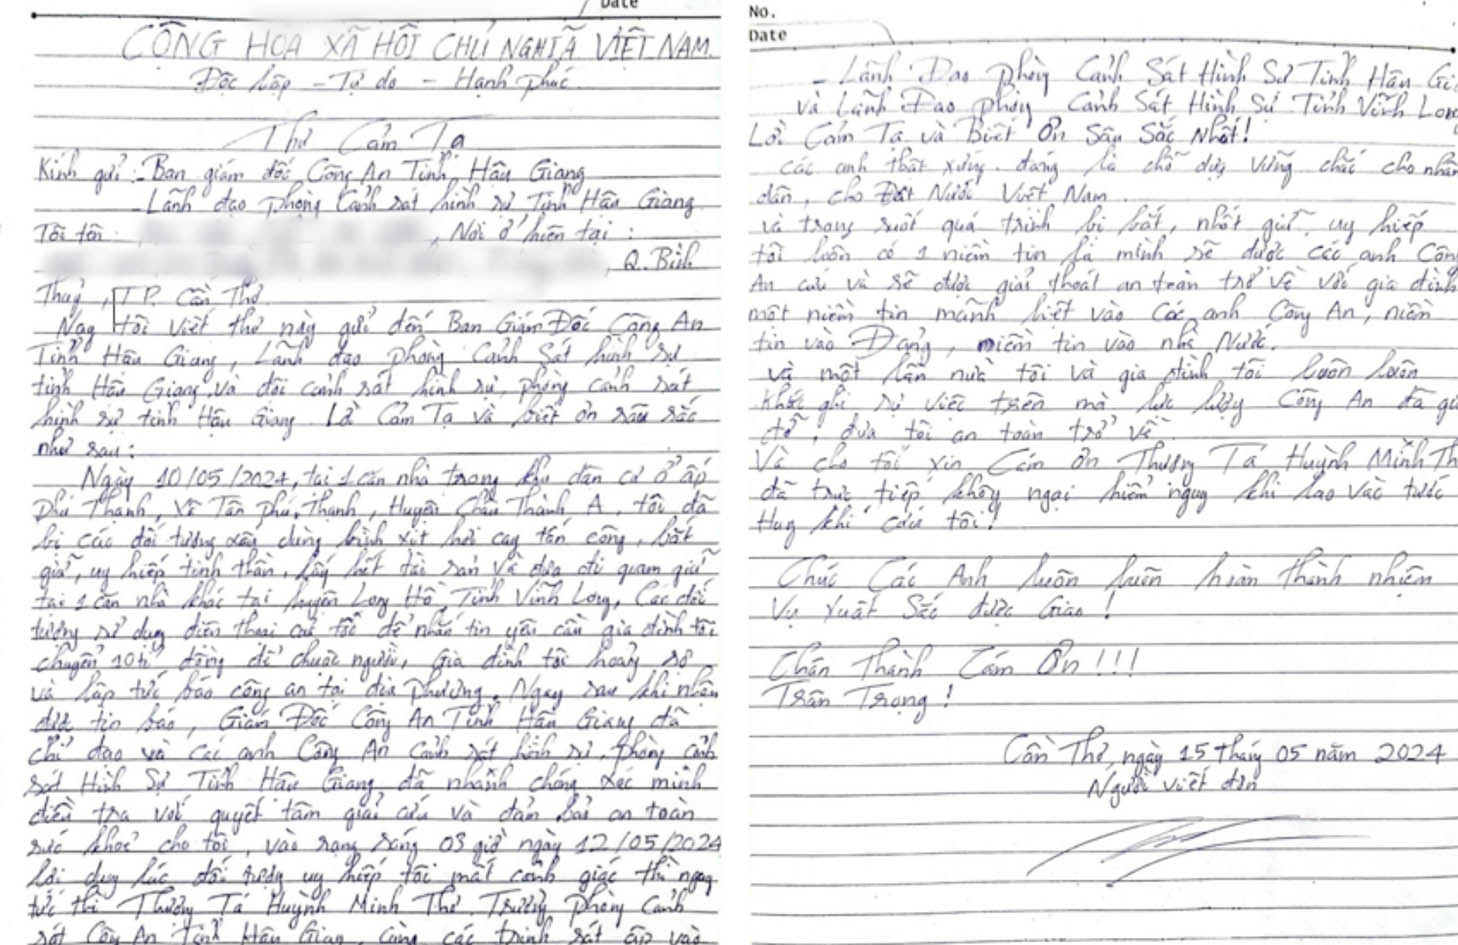 Date
CỘNG HOA XÃ HỘI CHỦ NGHĨA VIỆT NAM
Độc lập - Tự do - Hạnh phúc
Thư Cảm Tạ
Kính gửi: - Ban giám đốc Công An Tỉnh Hậu Giang
- Lãnh đạo phòng Cảnh sát hình sự Tỉnh Hậu Giang
Tôi tên: , Nơi ở hiện tại:
, Q. Bình
Thuỷ, TP. Cần Thơ
Nay tôi viết thư này gửi đến Ban Giám Đốc Công An
Tỉnh Hậu Giang, Lãnh đạo phòng Cảnh Sát hình sự
tỉnh Hậu Giang và đội cảnh sát hình sự, phòng cảnh sát
hình sự tỉnh Hậu Giang Lời Cảm Tạ và biết ơn sâu sắc
như sau:
Ngày 10/05/2024, tại 1 căn nhà trong khu dân cư ở ấp
Phú Thạnh, Xã Tân Phú Thạnh, Huyện Châu Thành A, tôi đã
bị các đối tượng dùng bình xịt hơi cay tấn công, bắt
giữ, uy hiếp tinh thần, lấy hết tài sản và đưa đi giam giữ
tại 1 căn nhà khác tại huyện Long Hồ, Tỉnh Vĩnh Long, Các đối
tượng sử dụng điện thoại của tôi để nhắn tin yêu cầu gia đình tôi
chuyển 10 tỉ đồng để chuộc người, Gia đình tôi hoảng sợ
và lập tức báo công an tại địa phương. Ngay sau khi nhận
được tin báo, Giám Đốc Công An Tỉnh Hậu Giang đã
chỉ đạo và các anh Công An cảnh sát hình sự, phòng cảnh
sát Hình Sự Tỉnh Hậu Giang đã nhanh chóng xác minh
điều tra với quyết tâm giải cứu và đảm bảo an toàn
sức khoẻ cho tôi, vào rạng sáng 03 giờ ngày 12/05/2024
lợi dụng lúc đối tượng uy hiếp tôi mất cảnh giác thì ngay
tức thì Thượng Tá Huỳnh Minh Thơ Trưởng phòng Cảnh
sát Công An tỉnh Hậu Giang, cùng các trinh sát ập vào
No.
Date
- Lãnh Đạo phòng Cảnh Sát Hình Sự Tỉnh Hậu Gi
và Lãnh Đạo phòng Cảnh Sát Hình Sự Tỉnh Vĩnh Long
Lời Cảm Tạ và Biết Ơn Sâu Sắc Nhất!
Các anh thật xứng đáng là chỗ dựa vững chắc cho nhân
dân, cho Đất Nước Việt Nam.
và trong suốt quá trình bị bắt, nhốt giữ, uy hiếp
tôi luôn có 1 niềm tin là mình sẽ được các anh Công
An cứu và sẽ được giải thoát an toàn trở về với gia đình
một niềm tin mãnh liệt vào Các anh Công An, niềm
tin vào Đảng, niềm tin vào nhà Nước.
và một lần nữa tôi và gia đình tôi luôn luôn
khắc ghi sự việc trên mà lực lượng Công An đã gi
đỡ, đưa tôi an toàn trở về.
Và cho tôi xin Cảm ơn Thượng Tá Huỳnh Minh Th
đã trực tiếp không ngại hiểm nguy khi lao vào tước
Hung khí cứu tôi!
Chúc Các Anh luôn luôn hoàn thành nhiệm
Vụ Xuất Sắc được Giao!
Chân Thành Cảm Ơn!!!
Trân Trọng!
Cần Thơ, ngày 15 tháng 05 năm 2024
Người viết đơn